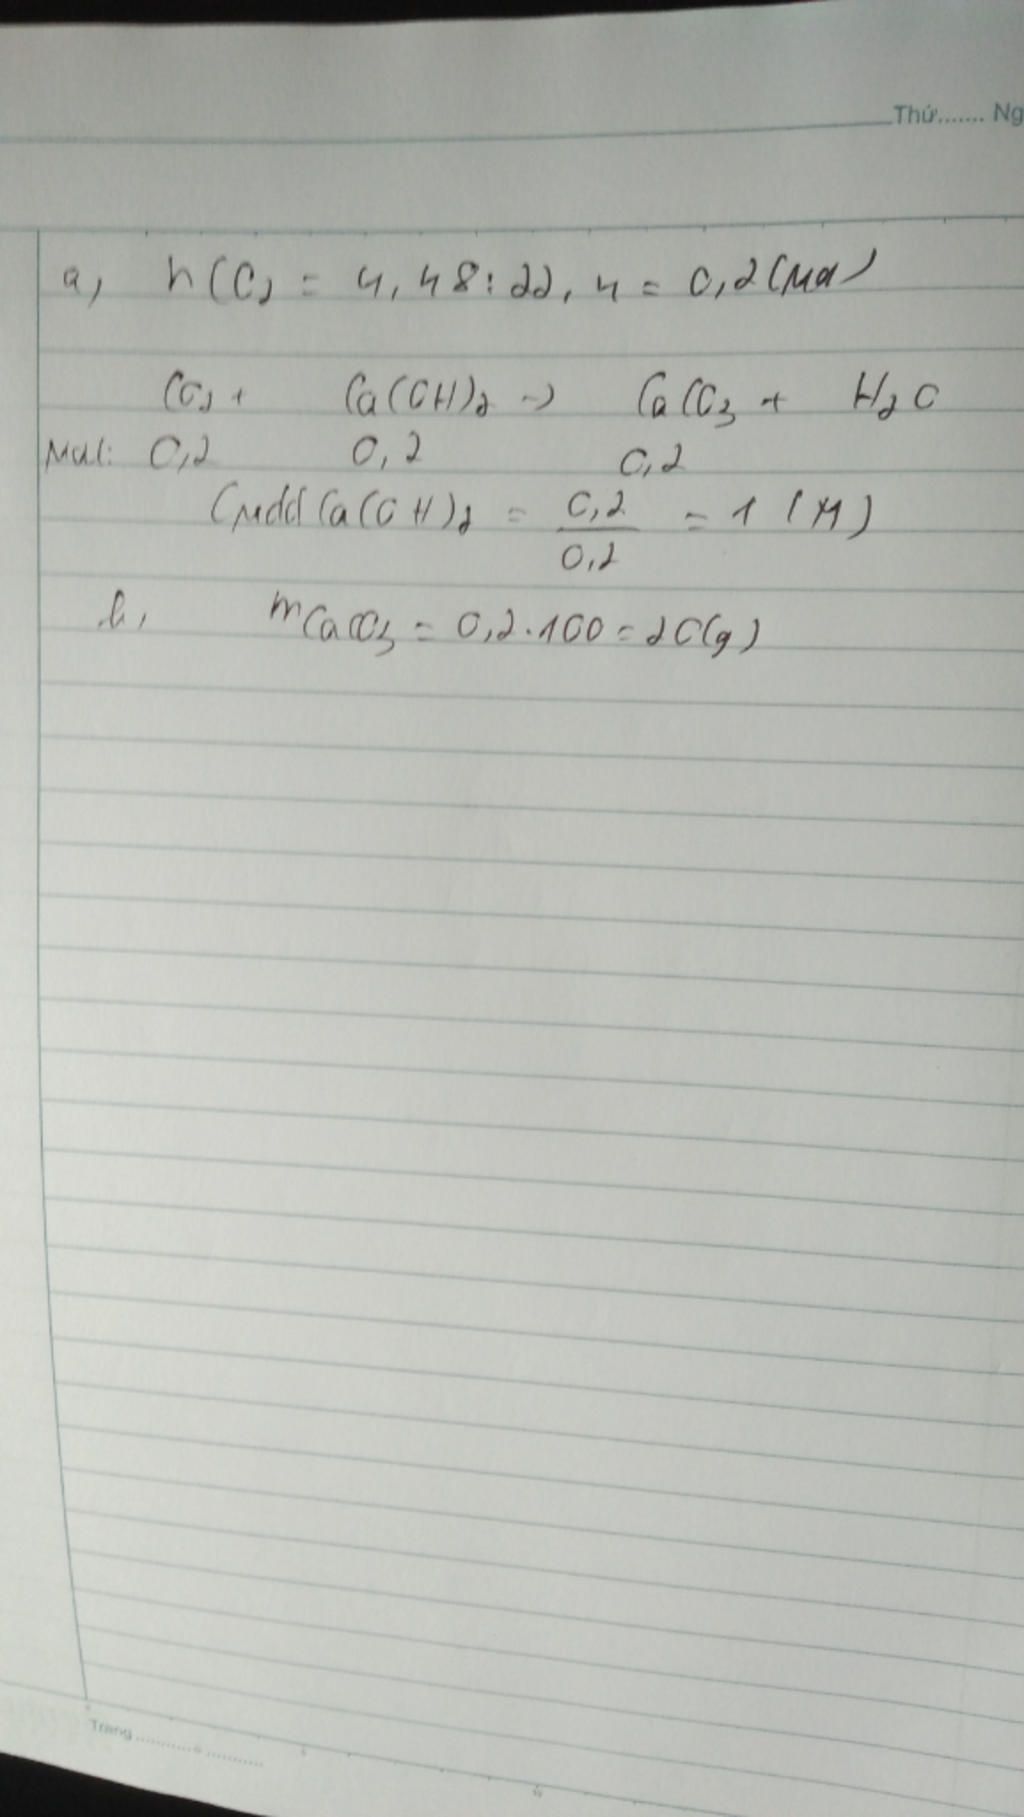 Thứ....... Ng
a, nCO2 = 4,48:22,4 = 0,2(mol)
CO2 + Ca(OH)2 -> CaCO3 + H2O
Mol: 0,2 0,2 0,2
CMddCa(OH)2 = 0,2/0,2 = 1 (M)
b, mCaCO3 = 0,2.100 = 20(g)
Trang